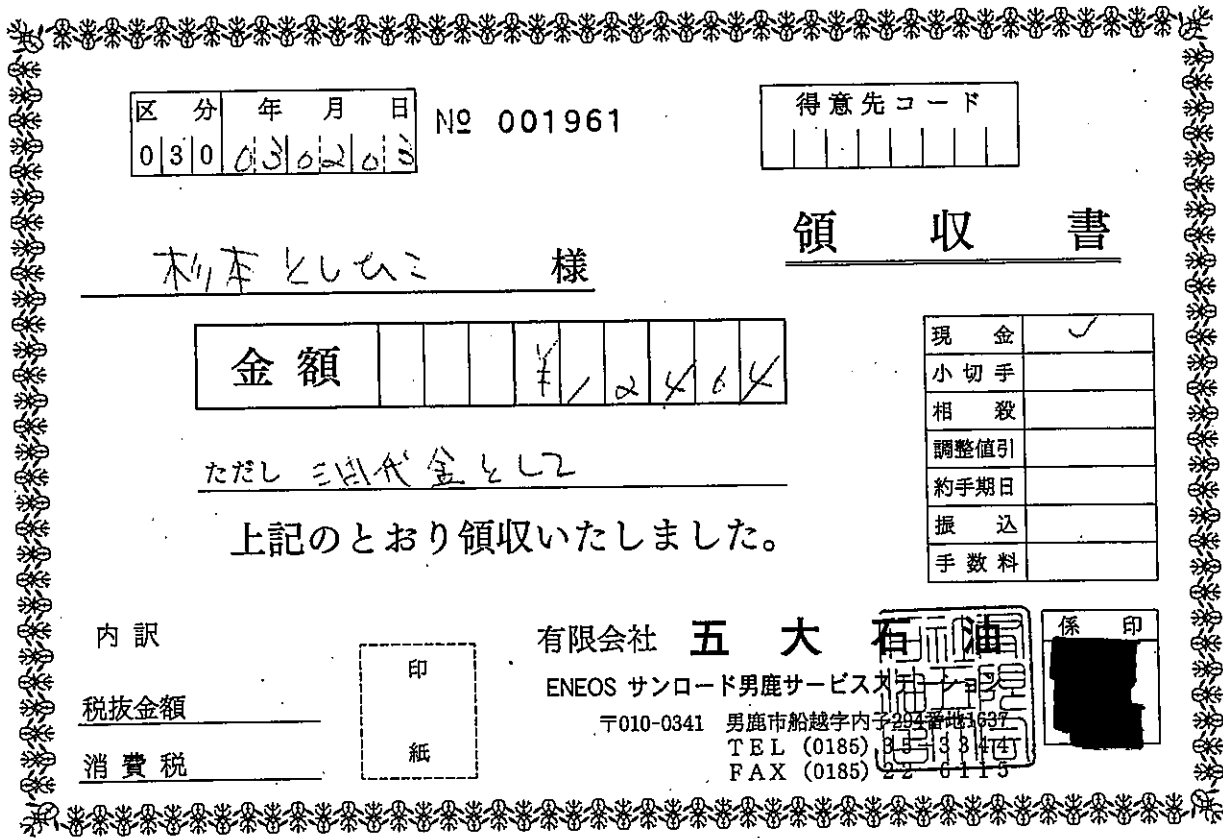 区 分 年 月 日
030 030203
№ 001961
得意先コード
領 収 書
杉本としひこ 様
金額 ¥12464
ただし 油代金として
上記のとおり領収いたしました。
現 金 ✓
小切手
相 殺
調整値引
約手期日
振 込
手数料
内訳
税抜金額
消費税
印
紙
有限会社 五大石油
ENEOS サンロード男鹿サービスステーション
〒010-0341 男鹿市船越字内子294番地1637
TEL (0185) 35-3344
FAX (0185) 22-6115
係 印